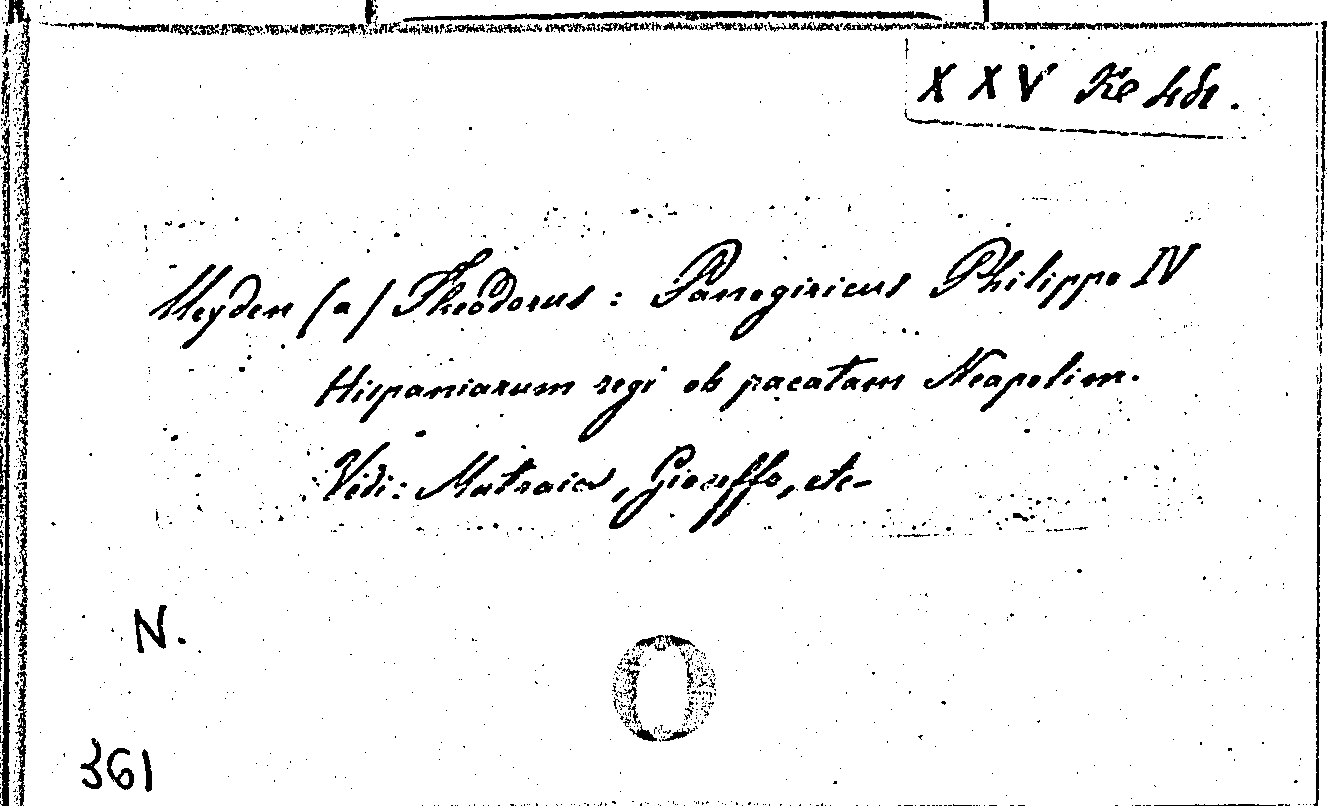 XXV Ke
Meyden (a) Theodorus: Panegiricus Philippo IV
Hispaniarum regi ob pacatam Neapolim.
Vedi: Matraia, Gioseffo, etc
N.
361